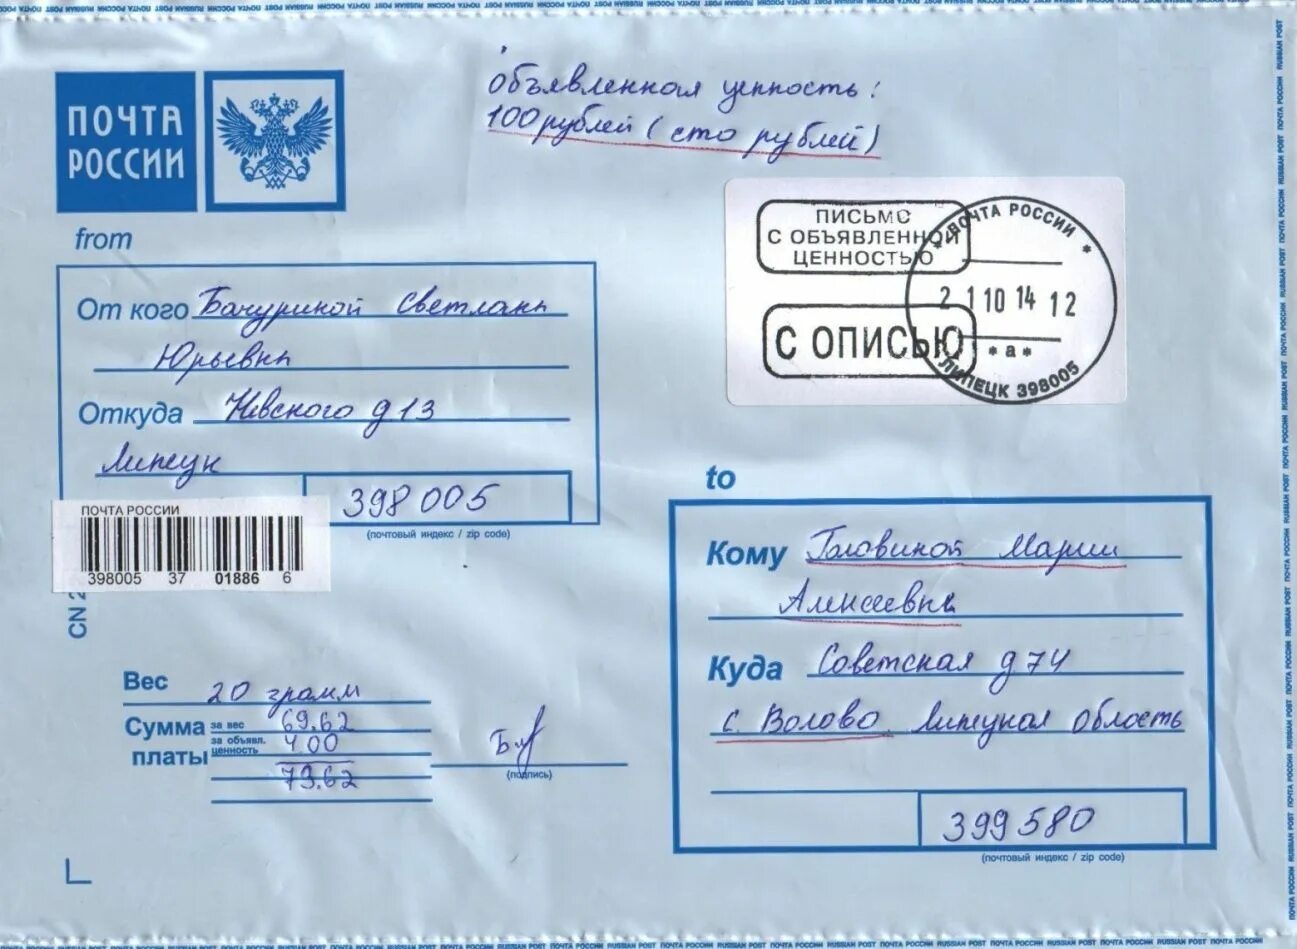 Объявленная ценность:
100 рублей (сто рублей)
ПОЧТА
РОССИИ
ПИСЬМО
С ОБЪЯВЛЕННОЙ
ЦЕННОСТЬЮ
С ОПИСЬЮ
ПОЧТА РОССИИ
21 10 14 12
* а *
ЛИПЕЦК 398005
from
От кого Бачуриной Светланы
Юрьевны
Откуда Невского д 13
Липецк
398005
(почтовый индекс / zip code)
ПОЧТА РОССИИ
398005 37 01886 6
CN 2
to
Кому Головиной Марии
Алексеевне
Куда Советская д 74
с. Волово Липецкая область
399580
(почтовый индекс / zip code)
Вес 20 грамм
Сумма за вес 69.62
платы за объявл. ценность 4 00
73.62
(подпись)
ПОЧТА РОССИИ RUSSIAN POST